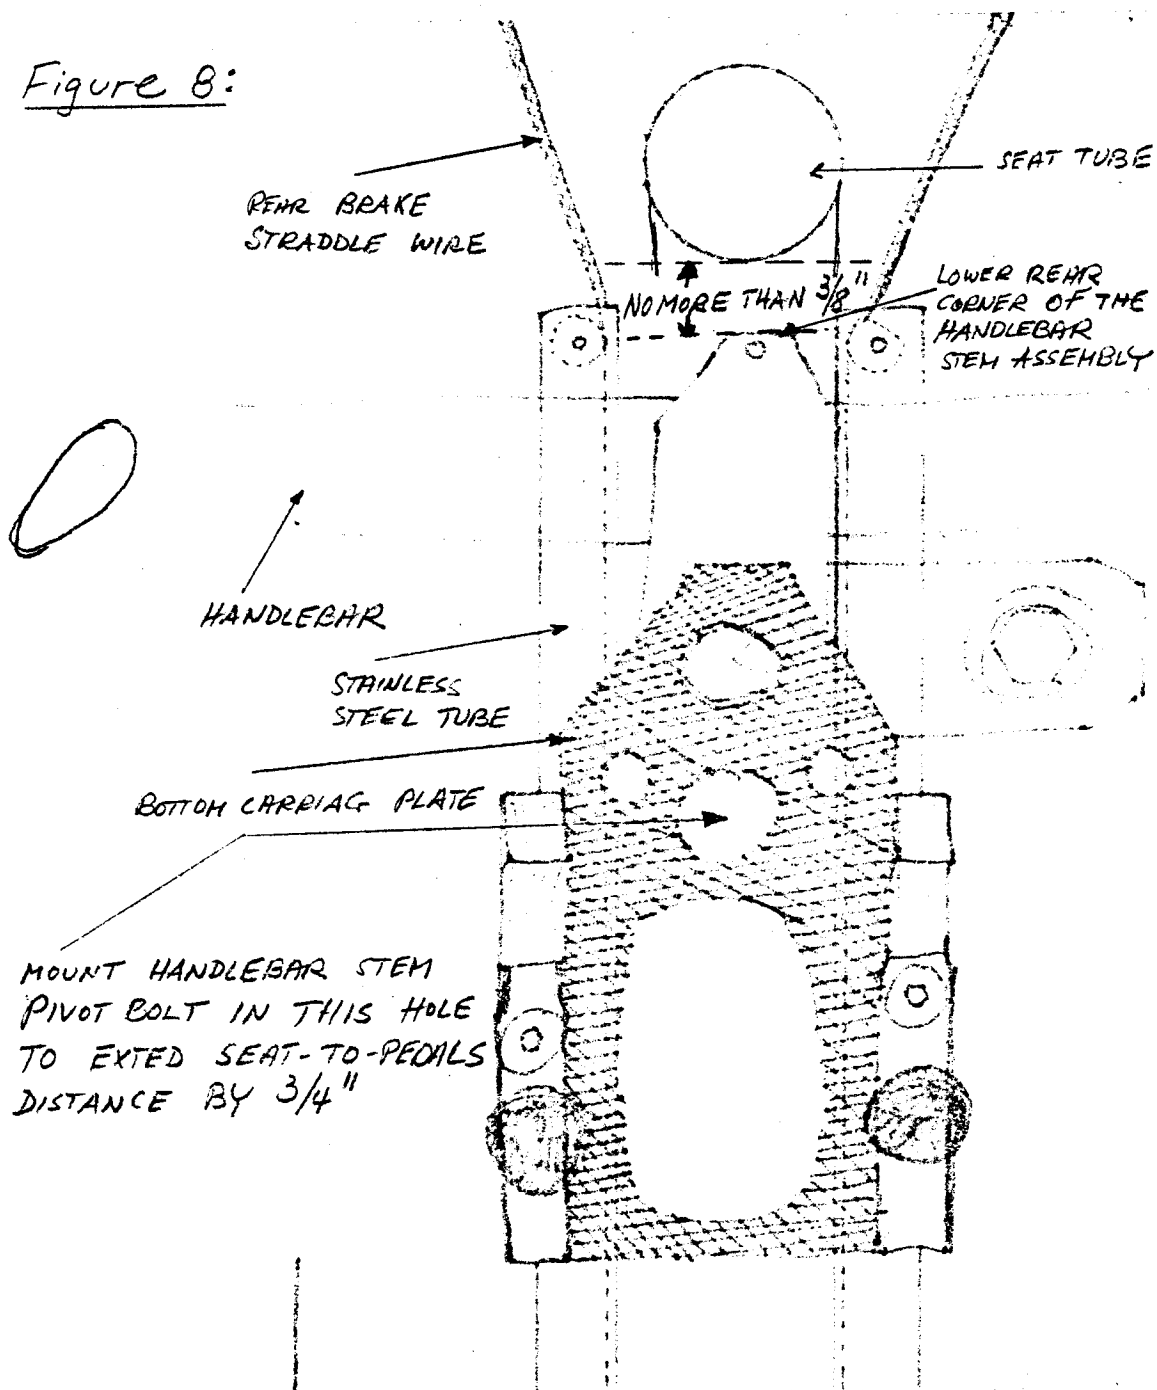 Figure 8:
REAR BRAKE
STRADDLE WIRE
SEAT TUBE
NO MORE THAN 3/8"
LOWER REAR
CORNER OF THE
HANDLEBAR
STEM ASSEMBLY
HANDLEBAR
STAINLESS
STEEL TUBE
BOTTOM CARRIAG PLATE
MOUNT HANDLEBAR STEM
PIVOT BOLT IN THIS HOLE
TO EXTED SEAT-TO-PEDALS
DISTANCE BY 3/4"